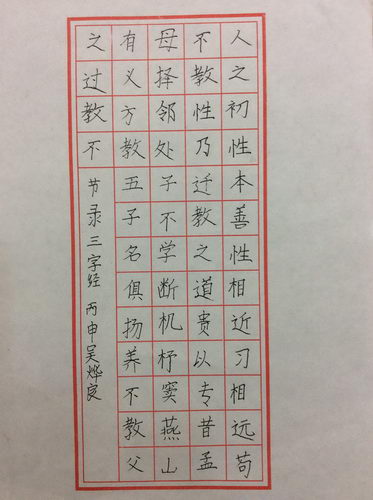 人之初性本善性相近习相远苟
不教性乃迁教之道贵以专昔孟
母择邻处子不学断机杼窦燕山
有义方教五子名俱扬养不教父
之过教不 节录三字经 丙申吴烨良